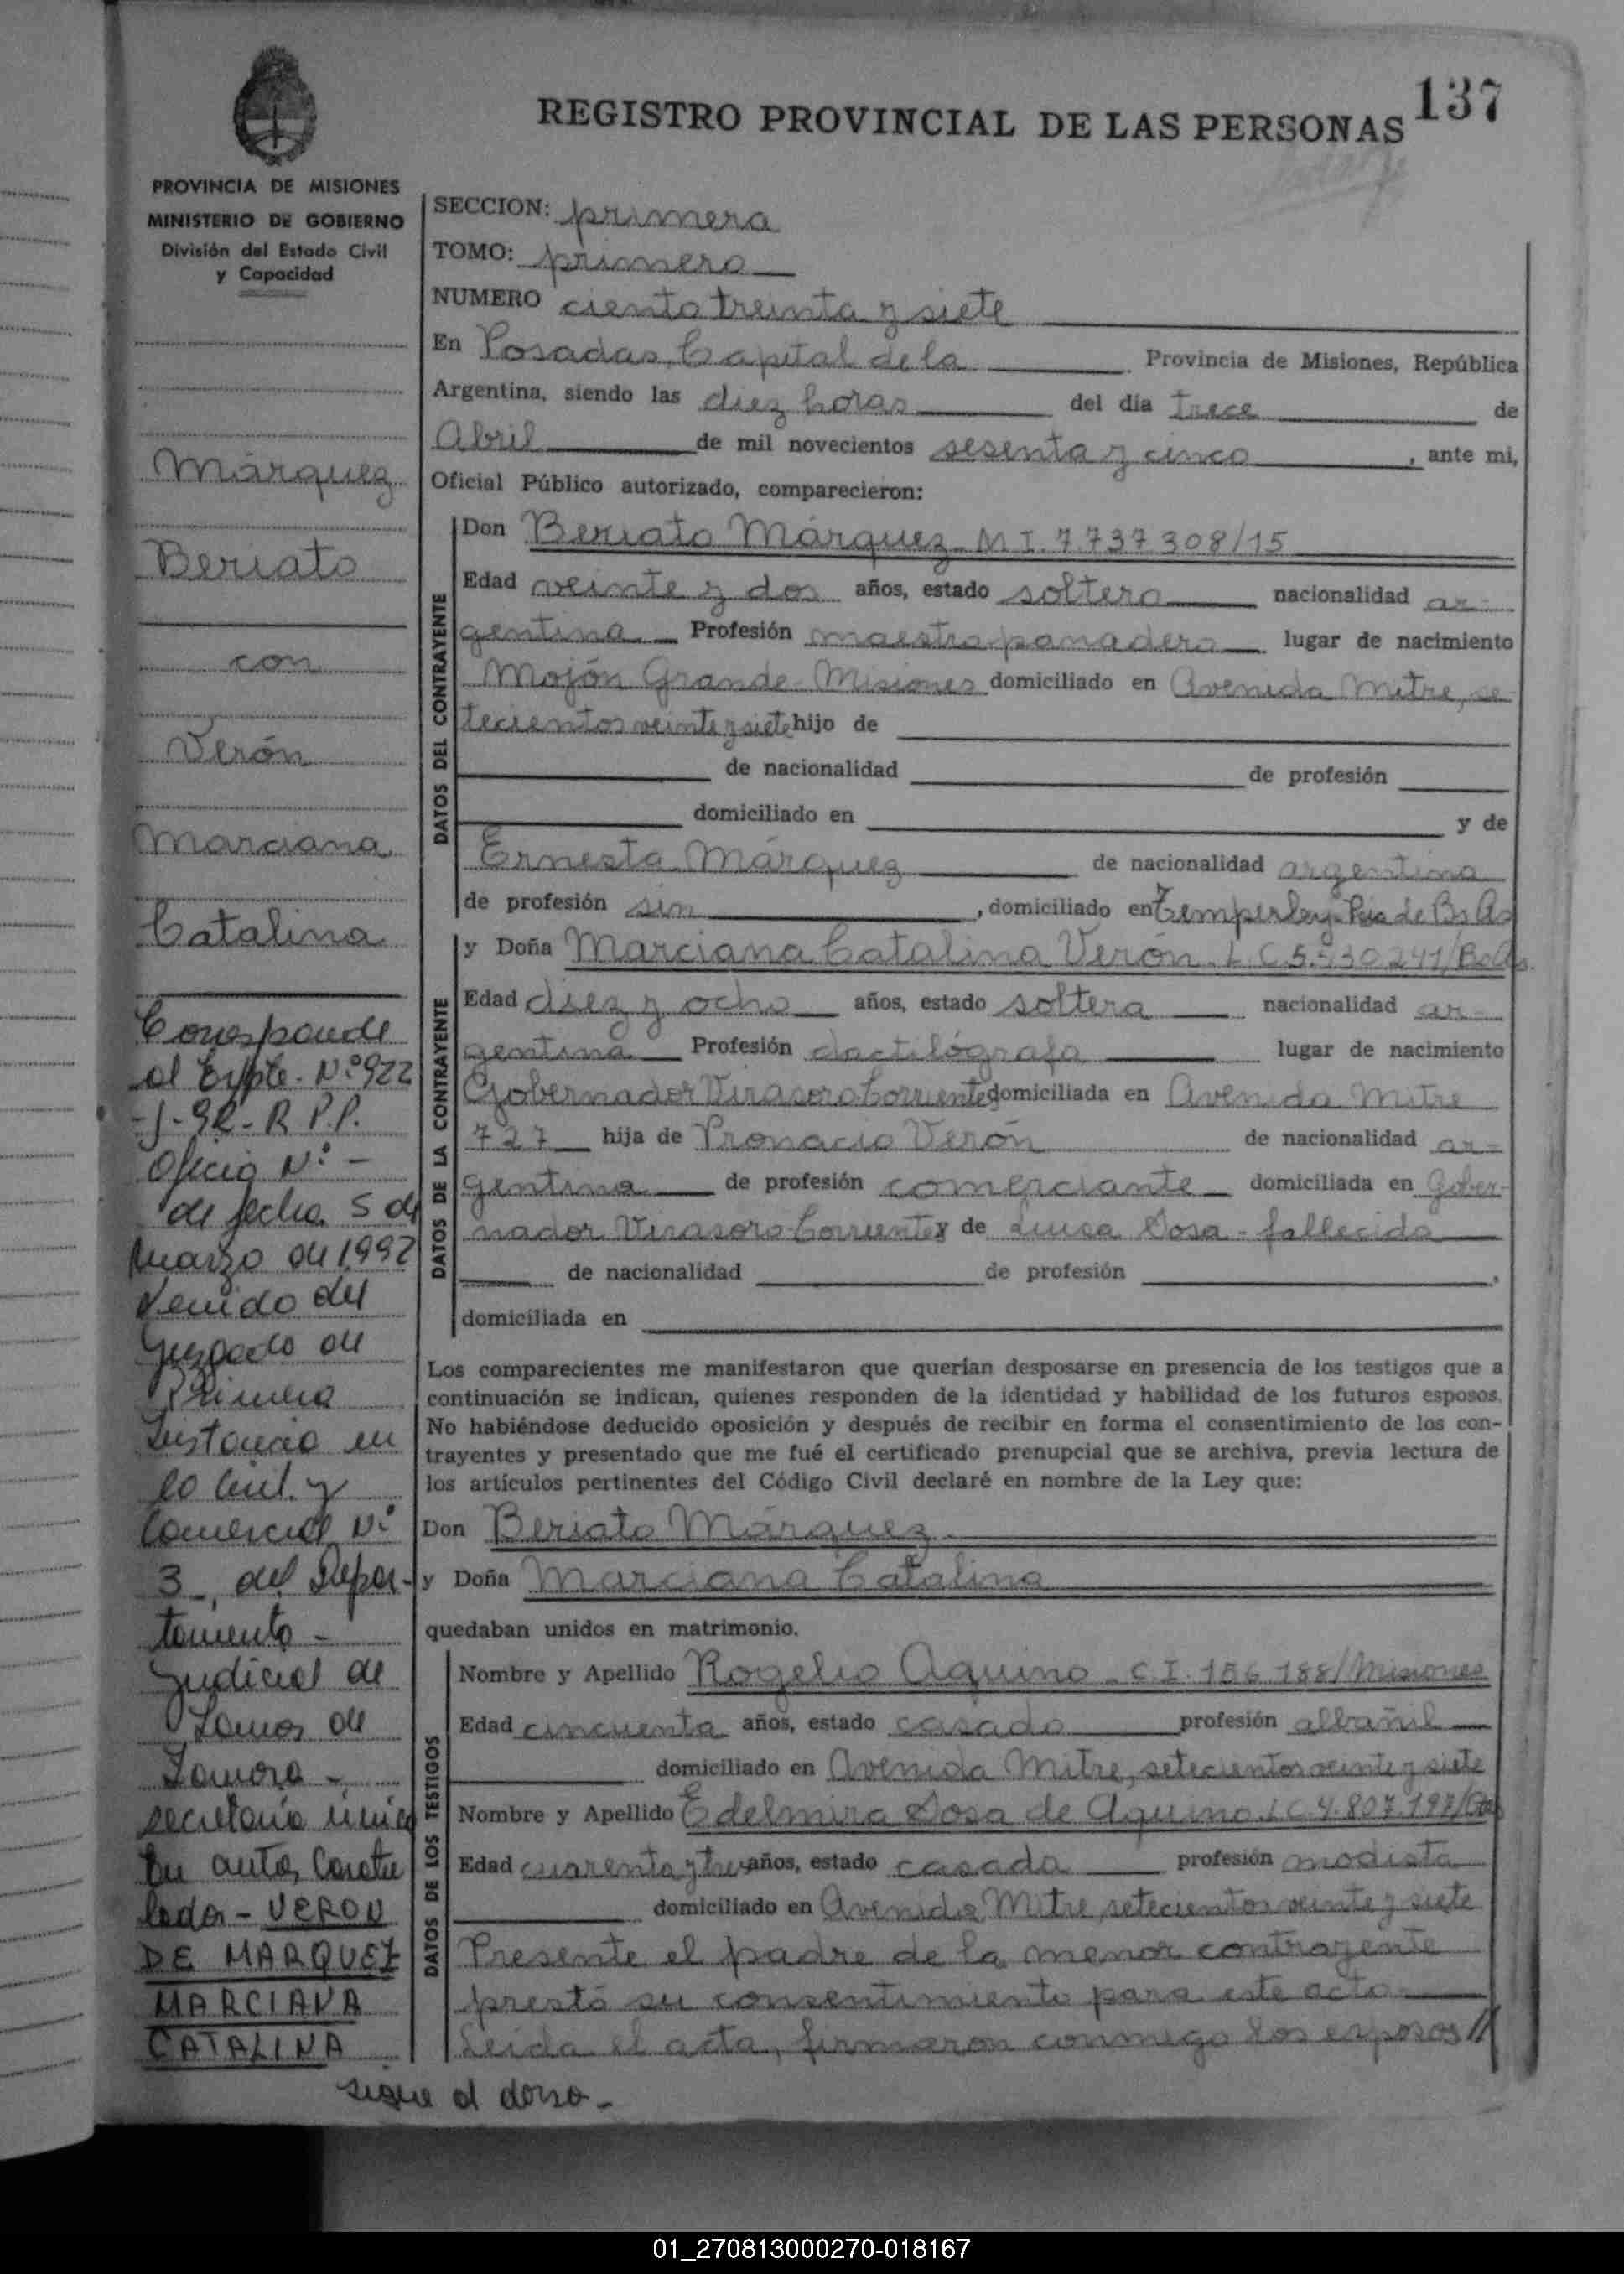 137
REGISTRO PROVINCIAL DE LAS PERSONAS
PROVINCIA DE MISIONES
MINISTERIO DE GOBIERNO
División del Estado Civil
y Capacidad
Márquez
Beriato
con
Verón
Marciana
Catalina
Corresponde
al Expte. Nº 922
-J-92-R.P.P.
Oficio Nº -
de fecha 5 de
Marzo de 1992
venido del
Juzgado de
Primera
Instancia en
lo Civil. y
Comercial Nº
3 -, del Depar-
tamento -
Judicial de
Lomos de
Zamora -
secretaría única
En autos, Caratu
lados - VERON
DE MARQUEZ
MARCIANA
CATALINA
sigue al dorso -
SECCION: primera
TOMO: primero
NUMERO ciento treinta y siete
En Posadas, Capital de la Provincia de Misiones, República
Argentina, siendo las diez horas del día trece de
Abril de mil novecientos sesenta y cinco, ante mi,
Oficial Público autorizado, comparecieron:
DATOS DEL CONTRAYENTE
Don Beriato Márquez - M I. 7.737.308/15
Edad veinte y dos años, estado soltero nacionalidad ar-
gentina Profesión maestro panadero lugar de nacimiento
Mojón Grande - Misiones domiciliado en Avenida Mitre, se-
tecientos veinte y siete hijo de
de nacionalidad de profesión
domiciliado en y de
Ernesta Márquez de nacionalidad argentina
de profesión sin, domiciliado en Temperley - Pcia de Bs As
DATOS DE LA CONTRAYENTE
y Doña Marciana Catalina Verón - L. C. 5.930.241/Bs.As.
Edad diez y ocho años, estado soltera nacionalidad ar-
gentina Profesión dactilógrafa lugar de nacimiento
Gobernador Virasoro-Corrientes domiciliada en Avenida Mitre
727 hija de Pronacio Verón de nacionalidad ar-
gentina de profesión comerciante domiciliada en Gober-
nador Virasoro-Corrientes y de Luisa Sosa - fallecida
de nacionalidad de profesión ,
domiciliada en
Los comparecientes me manifestaron que querían desposarse en presencia de los testigos que a
continuación se indican, quienes responden de la identidad y habilidad de los futuros esposos.
No habiéndose deducido oposición y después de recibir en forma el consentimiento de los con-
trayentes y presentado que me fué el certificado prenupcial que se archiva, previa lectura de
los artículos pertinentes del Código Civil declaré en nombre de la Ley que:
Don Beriato Márquez
y Doña Marciana Catalina
quedaban unidos en matrimonio.
DATOS DE LOS TESTIGOS
Nombre y Apellido Rogelio Aquino - C. I. 156.188/Misiones
Edad cincuenta años, estado casado profesión albañil
domiciliado en Avenida Mitre, setecientos veinte y siete
Nombre y Apellido Edelmira Sosa de Aquino. L C. 4.807.197/
Edad cuarenta y tres años, estado casada profesión modista
domiciliado en Avenida Mitre, setecientos veinte y siete
Presente el padre de la menor contrayente
prestó su consentimiento para este acto
Leída el acta, firmaron conmigo los esposos //
01_270813000270-018167